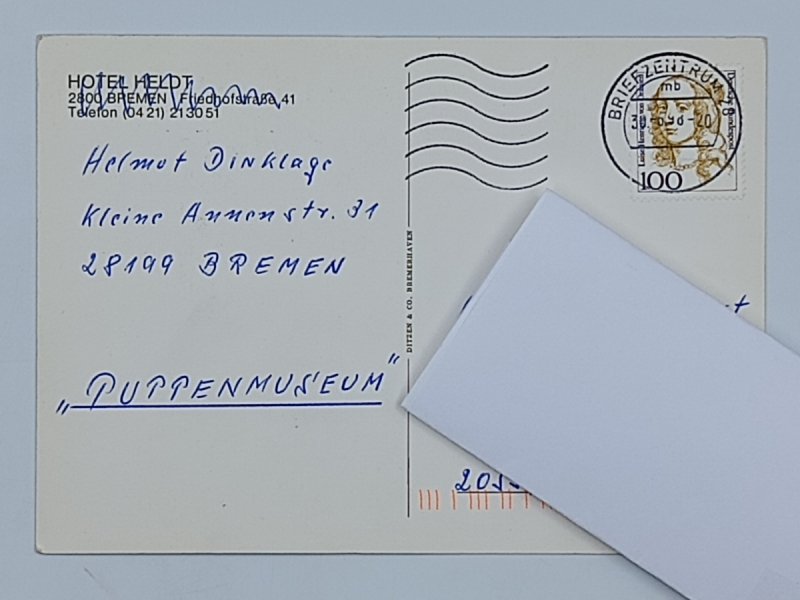 HOTEL HELDT
2800 BREMEN Friedhofstraße 41
Telefon (04 21) 21 30 51
Helmut Dinklage
Kleine Annenstr. 31
28199 BREMEN
„PUPPENMUSEUM"
DITZEN & CO. BREMERHAVEN
BRIEFZENTRUM 28
mb
-20
Deutsche Bundespost
100